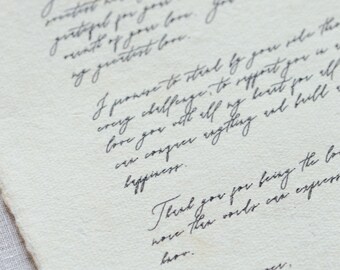 greatest
grateful for your
warmth of your love. You
my greatest love.
I promise to stand by your side thro
every challenge, to support you in a
love you with all my heart for all
can conquer anything and build a
happiness.
Thank you for being the lo
more than words can express
know.